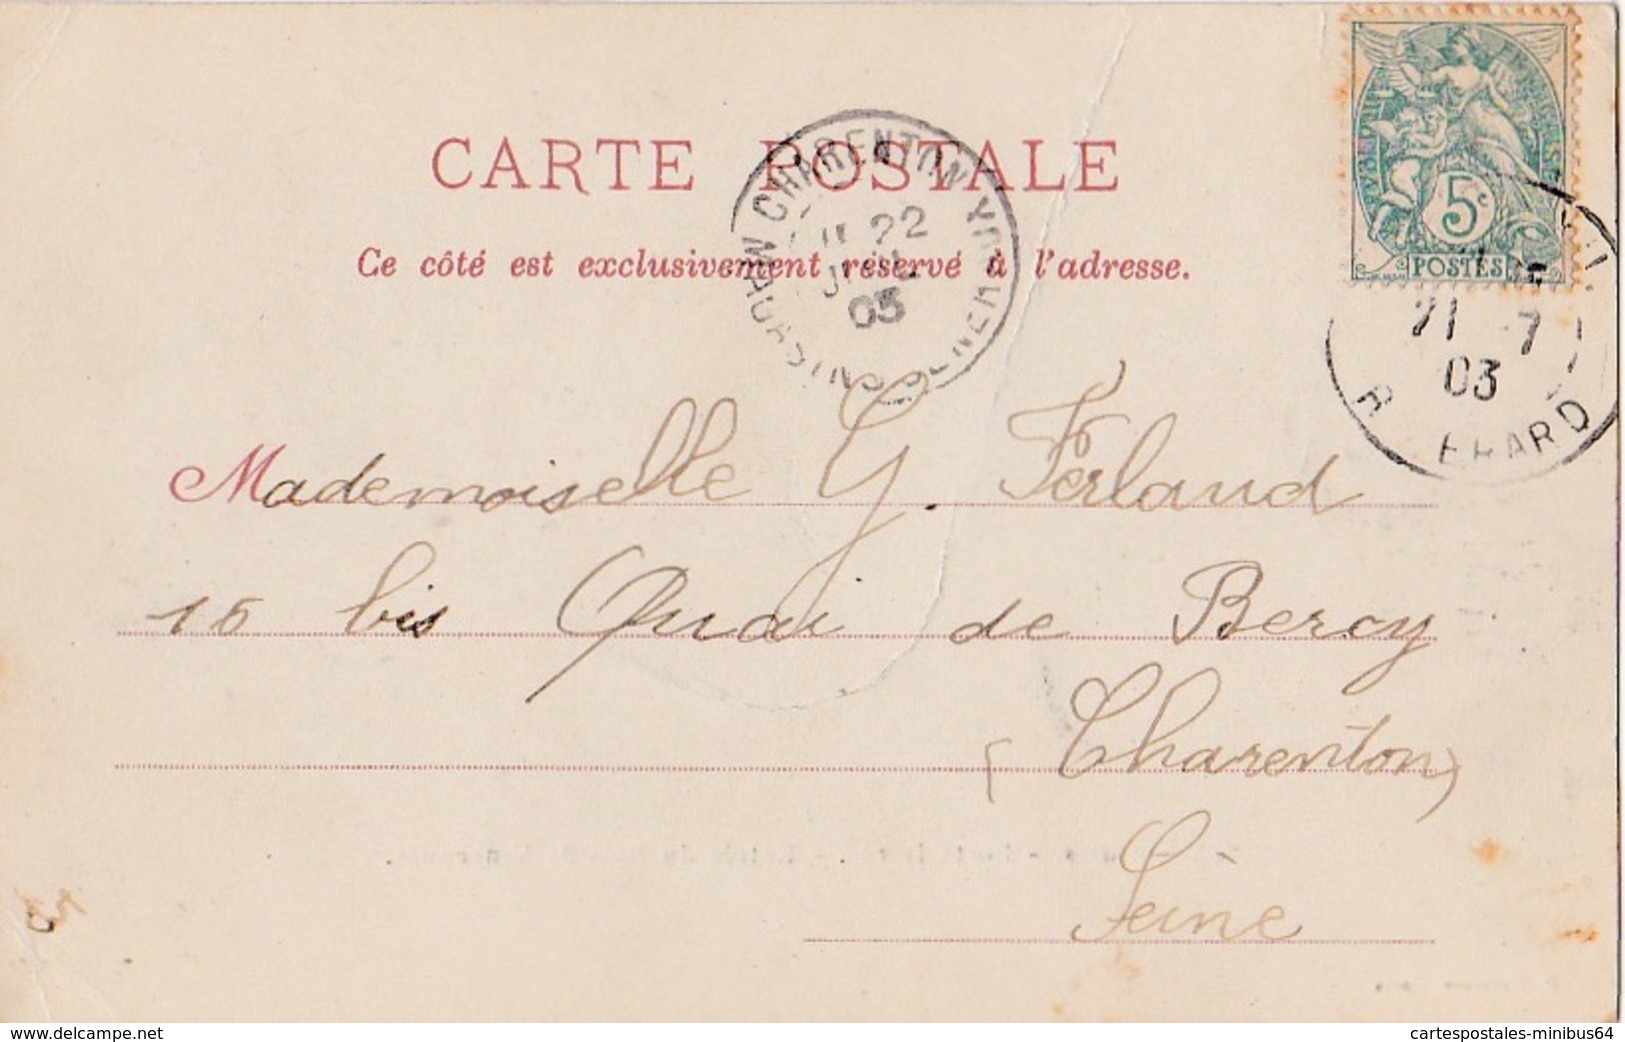 CARTE POSTALE
Ce côté est exclusivement réservé à l'adresse.
5c
POSTES
CHARENTON
22
03
21 7
03
R ERARD
Mademoiselle G. Ferland
15 bis Quai de Bercy
(Charenton)
Seine
www.delcampe.net
cartespostales-minibus64